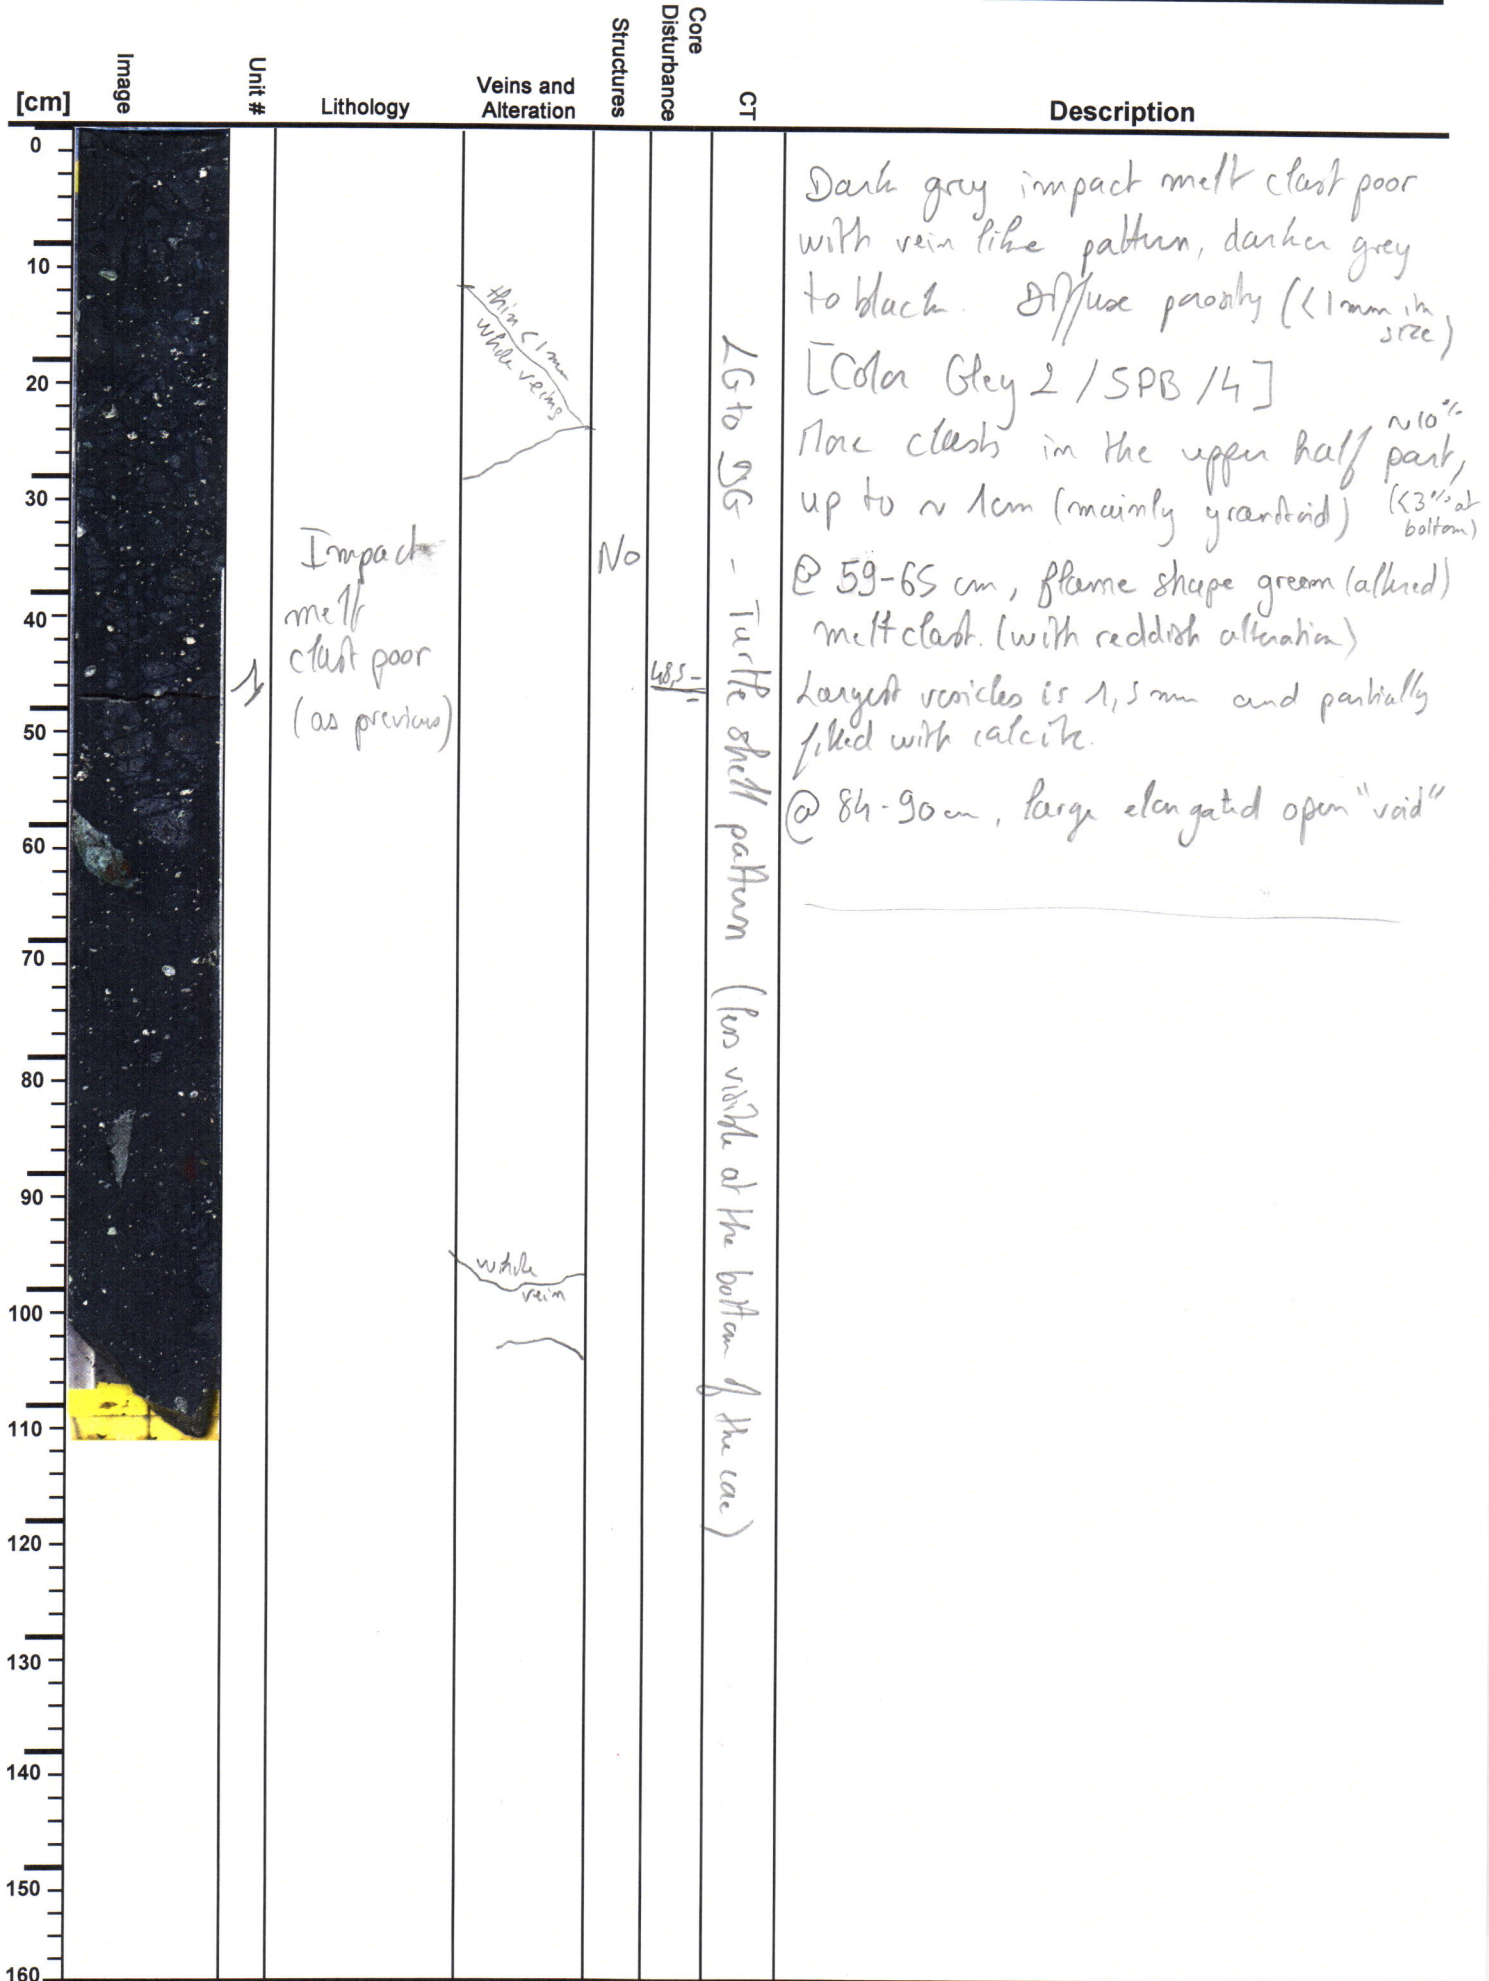 [cm]
Image
Unit #
Lithology
Veins and
Alteration
Structures
Core
Disturbance
CT
Description
0
10
20
30
40
50
60
70
80
90
100
110
120
130
140
150
160
1
Impact
melt
clast poor
(as previous)
thin < 1 mm
white veins
white
vein
No
48,5
LG to gG - Turtle shell pattern (less visible at the bottom of the core)
Dark grey impact melt clast poor
with vein like pattern, darker grey
to black. Diffuse porosity (< 1 mm in
size)
[Color Gley 2 / 5PB / 4]
More clasts in the upper half part, ~10%
up to ~ 1cm (mainly granitoid) (<3% at
bottom)
@ 59-65 cm, flame shape green (altered)
melt clast. (with reddish alteration)
Largest vesicles is 1,5 mm and partially
filled with calcite.
@ 84-90 cm, large elongated open "void"